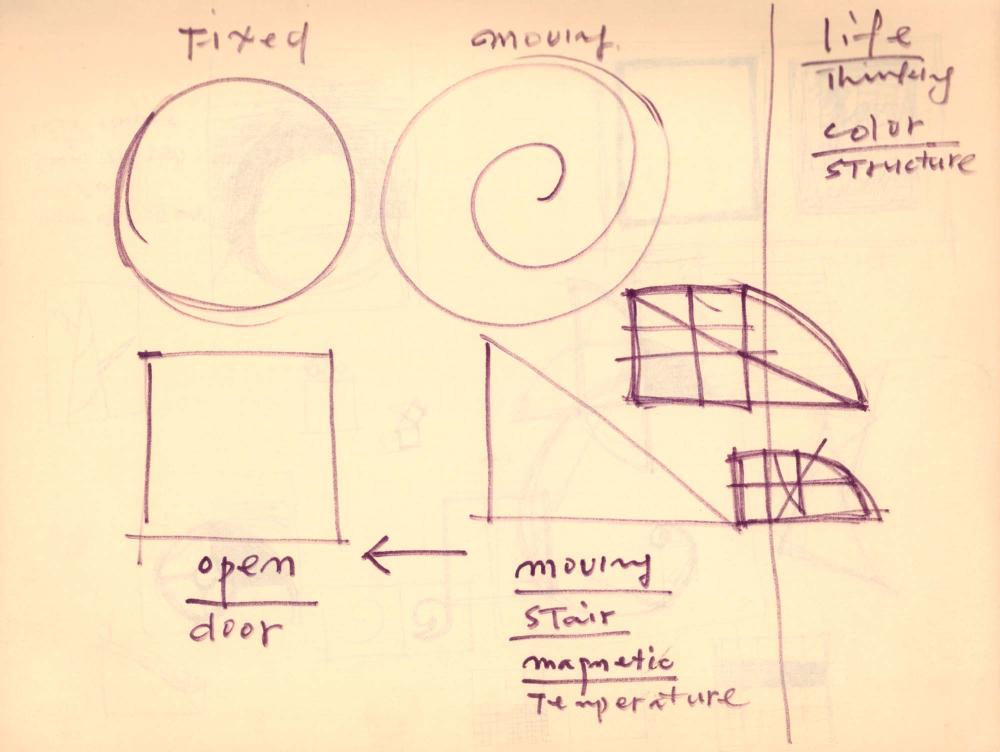 Fixed
moving
life
Thinking
color
structure
open
door
moving
stair
magnetic
Temperature